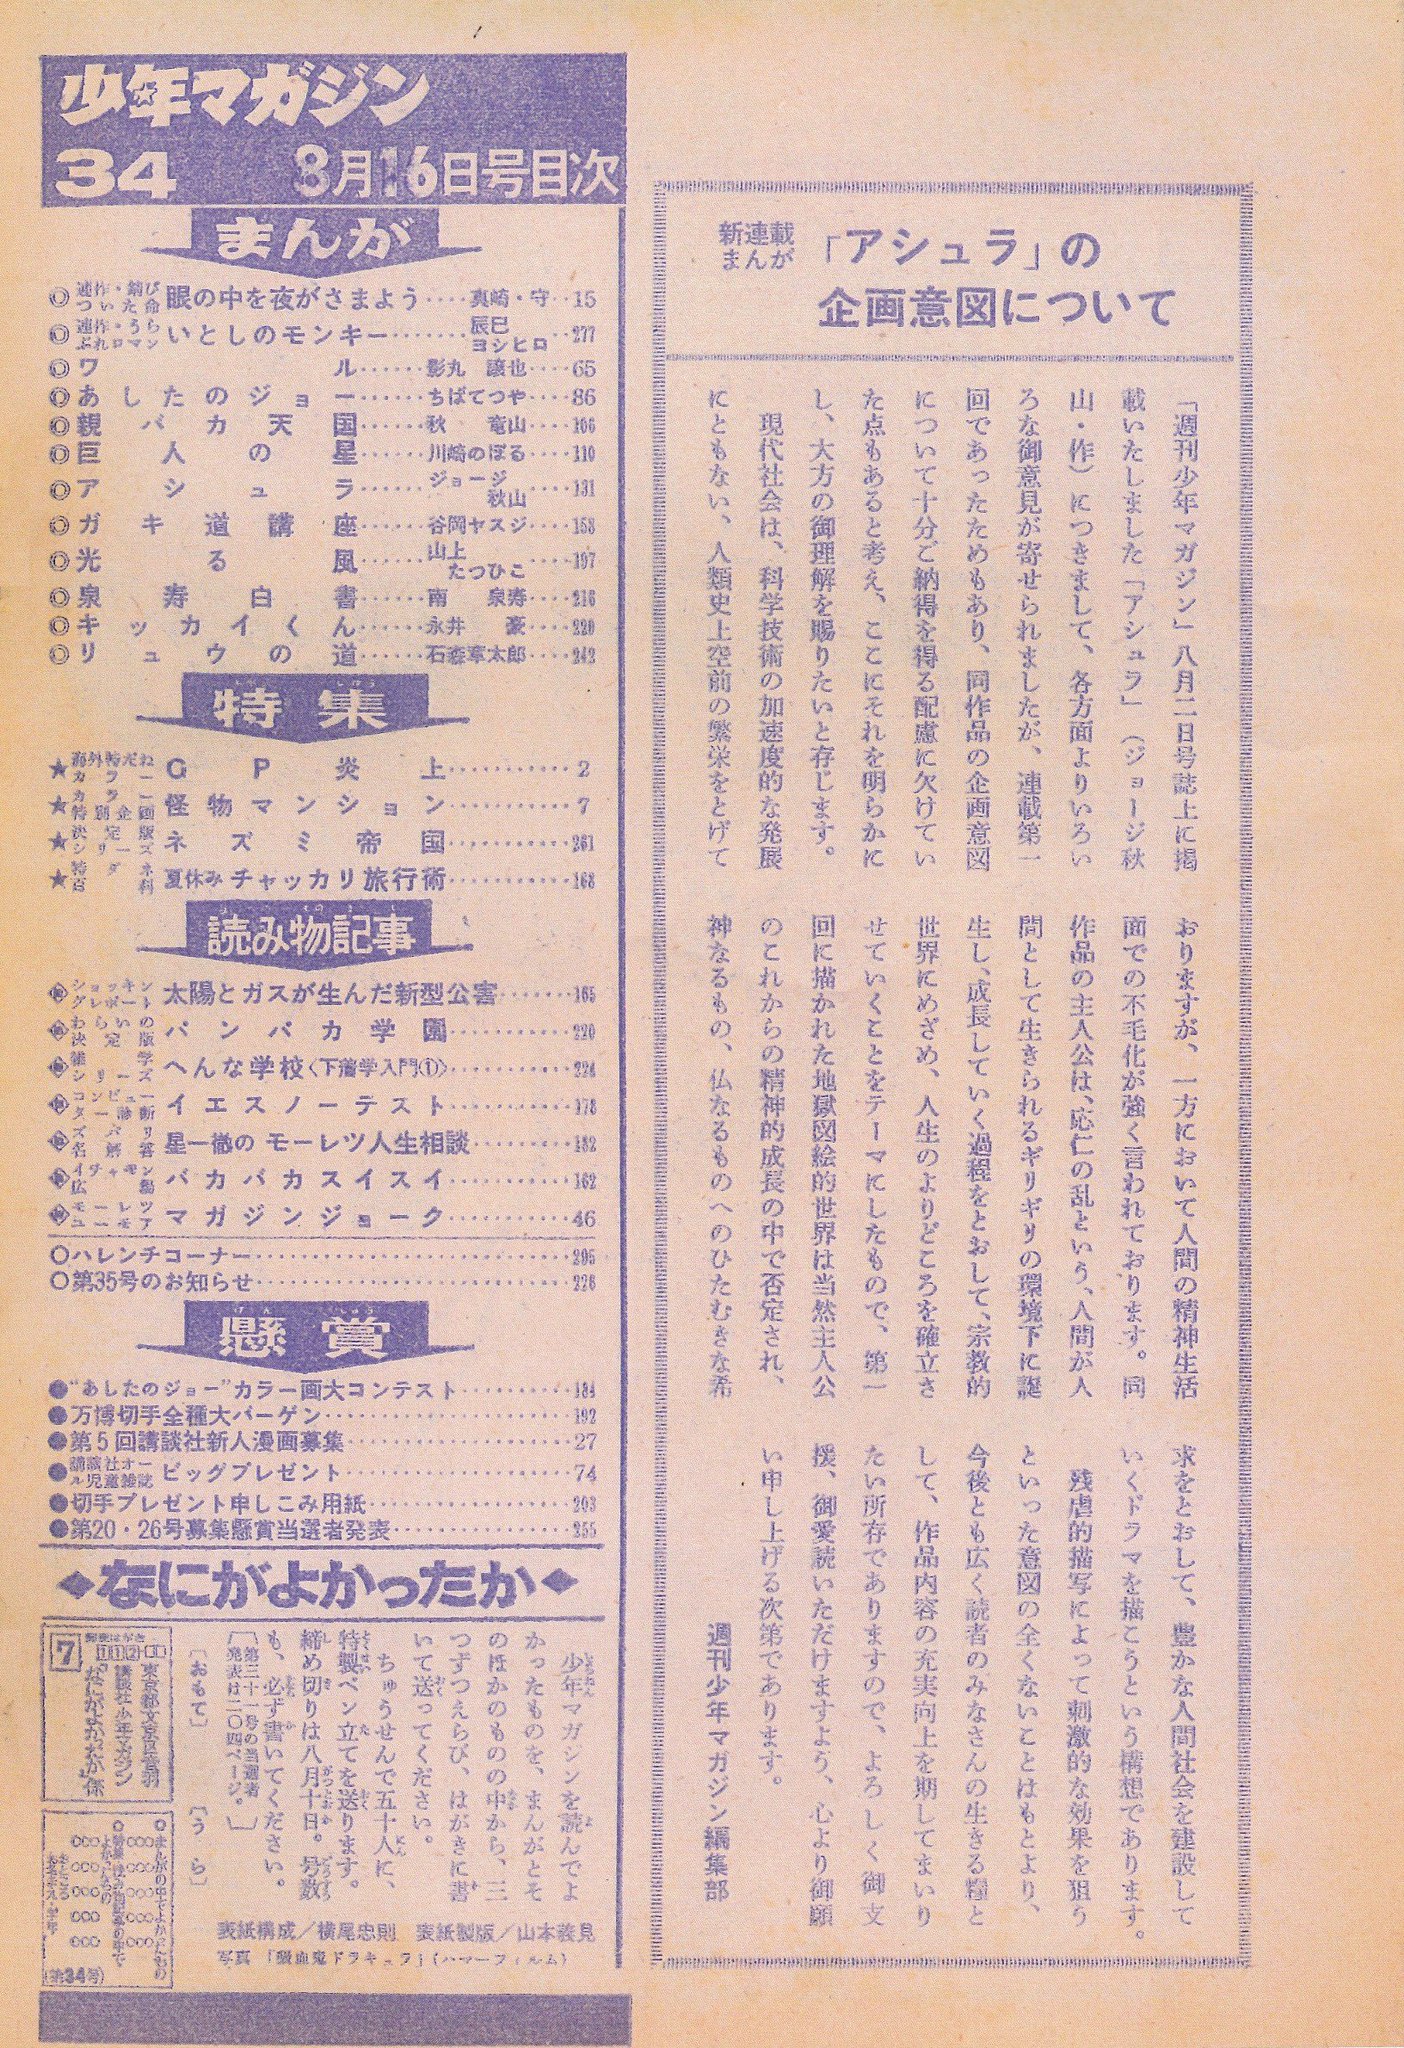 少年マガジン
34 8月16日号目次
まんが
◎連作・錆びついた命 眼の中を夜がさまよう‥‥真崎・守‥15
◎連作・うらぶれロマン いとしのモンキー‥‥辰巳ヨシヒロ‥277
◎ワル‥‥影丸譲也‥‥65
◎あしたのジョー‥‥ちばてつや‥‥86
◎親バカ天国‥‥秋竜山‥‥106
◎巨人の星‥‥川崎のぼる‥‥110
◎アシュラ‥‥ジョージ秋山‥‥131
◎ガキ道講座‥‥谷岡ヤスジ‥‥158
◎光る風‥‥山上たつひこ‥‥197
◎泉寿白書‥‥南泉寿‥‥216
◎キッカイくん‥‥永井豪‥‥220
◎リュウの道‥‥石森章太郎‥‥242
特集
★海外特だねカラー GP炎上‥‥2
★カラー特別企画 怪物マンション‥‥7
★決定版シリーズ ネズミ帝国‥‥261
★特ダネ百科 夏休みチャッカリ旅行術‥‥168
読み物記事
ショッキングレポート 太陽とガスが生んだ新型公害‥‥165
わらいの決定版 バンバカ学園‥‥220
雑学シリーズ へんな学校〈下落学入門①〉‥‥224
コンピュータ診断 イエスノーテスト‥‥178
ズバリ名解答 星一徹のモーレツ人生相談‥‥182
イチャモン広場 バカバカスイスイ‥‥162
モーレツユーモア マガジンジョーク‥‥46
○ハレンチコーナー‥‥205
○第35号のお知らせ‥‥226
懸賞
●“あしたのジョー”カラー画大コンテスト‥‥184
●万博切手全種大バーゲン‥‥192
●第5回講談社新人漫画募集‥‥27
●講談社オール児童雑誌 ビッグプレゼント‥‥74
●切手プレゼント申しこみ用紙‥‥203
●第20・26号募集懸賞当選者発表‥‥255
◆なにがよかったか◆
少年マガジンを読んでよ
かったものを、まんがとそ
のほかのものの中から、三
つずつえらび、はがきに書
いて送ってください。
ちゅうせんで五十人に、
特製ペン立てを送ります。
締め切りは八月十日。号数
も、必ず書いてください。
〔第三十一号の当選者
発表は二〇四ページ。〕
〔おもて〕 〔うら〕
郵便はがき
112
7
東京都文京区音羽
講談社 少年マガジン
「なにがよかったか」係
○まんがの中でよかったもの
○○○ ○○○ ○○○ ○○○ ○○○
(第34号)
表紙構成／横尾忠則 表紙製版／山本義見
写真「吸血鬼ドラキュラ」(ハマーフィルム)
新連載まんが「アシュラ」の
企画意図について
「週刊少年マガジン」八月二日号誌上に掲
載いたしました「アシュラ」（ジョージ秋
山・作）につきまして、各方面よりいろい
ろな御意見が寄せられましたが、連載第一
回であったためもあり、同作品の企画意図
について十分ご納得を得る配慮に欠けてい
た点もあると考え、ここにそれを明らかに
し、大方の御理解を賜りたいと存じます。
現代社会は、科学技術の加速度的な発展
にともない、人類史上空前の繁栄をとげて
おりますが、一方において人間の精神生活
面での不毛化が強く言われております。同
作品の主人公は、応仁の乱という、人間が人
間として生きられるギリギリの環境下に誕
生し、成長していく過程をとおして、宗教的
世界にめざめ、人生のよりどころを確立さ
せていくことをテーマにしたもので、第一
回に描かれた地獄図絵的世界は当然主人公
のこれからの精神的成長の中で否定され、
神なるもの、仏なるものへのひたむきな希
求をとおして、豊かな人間社会を建設して
いくドラマを描こうという構想であります。
残虐的描写によって刺激的な効果を狙う
といった意図の全くないことはもとより、
今後とも広く読者のみなさんの生きる糧と
して、作品内容の充実向上を期してまいり
たい所存でありますので、よろしく御支
援、御愛読いただけますよう、心より御願
い申し上げる次第であります。
週刊少年マガジン編集部